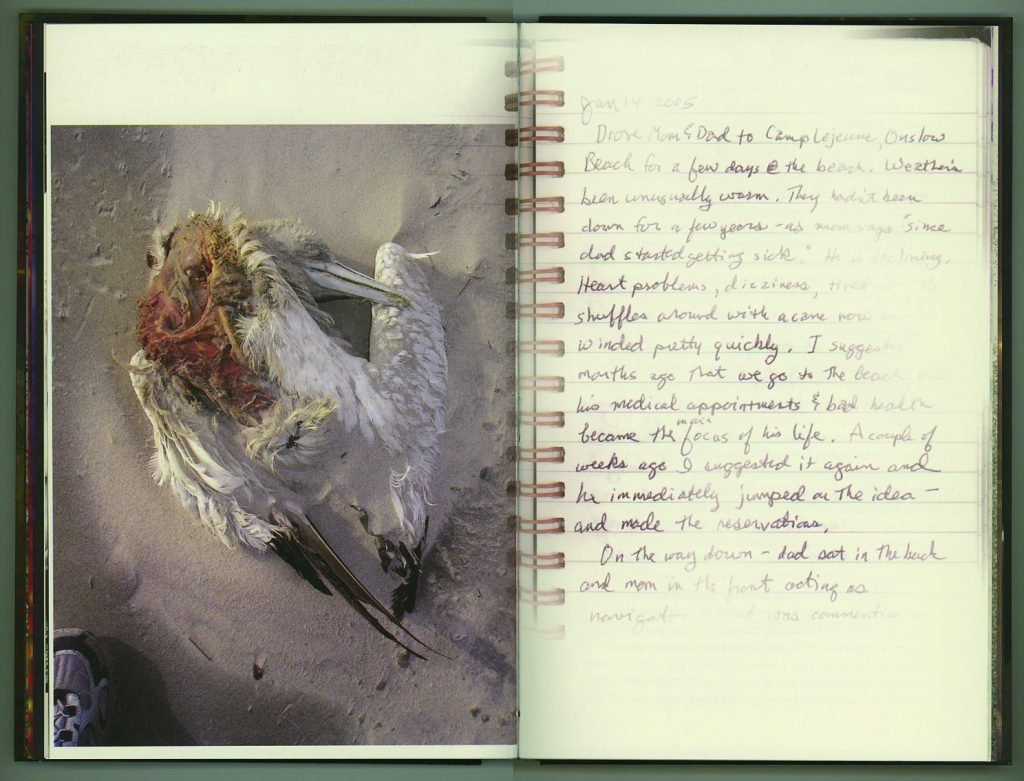 Jan 14 2005
Drove Mom & Dad to Camp Lejeune, Onslow
Beach for a few days @ the beach. Weather's
been unusually warm. They hadn't been
down for a few years - as mom says "since
dad started getting sick." He is declining.
Heart problems, dizziness,
shuffles around with a cane now
winded pretty quickly. I suggested
months ago that we go to the beach
his medical appointments & bad health
became the main focus of his life. A couple of
weeks ago I suggested it again and
he immediately jumped on the idea -
and made the reservations.
On the way down - dad sat in the back
and mom in the front acting as
navigator was commenting